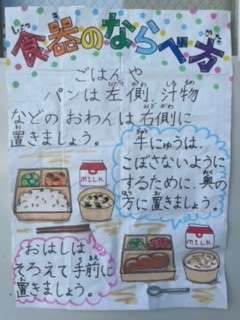 食器のならべ方
ごはんや
パンは左側、汁物
などのおわんは右側に
置きましょう。
牛にゅうは、
こぼさないように
するために、奥の
方に置きましょう。
MILK
MILK
おはしは
そろえて手前に
置きましょう。